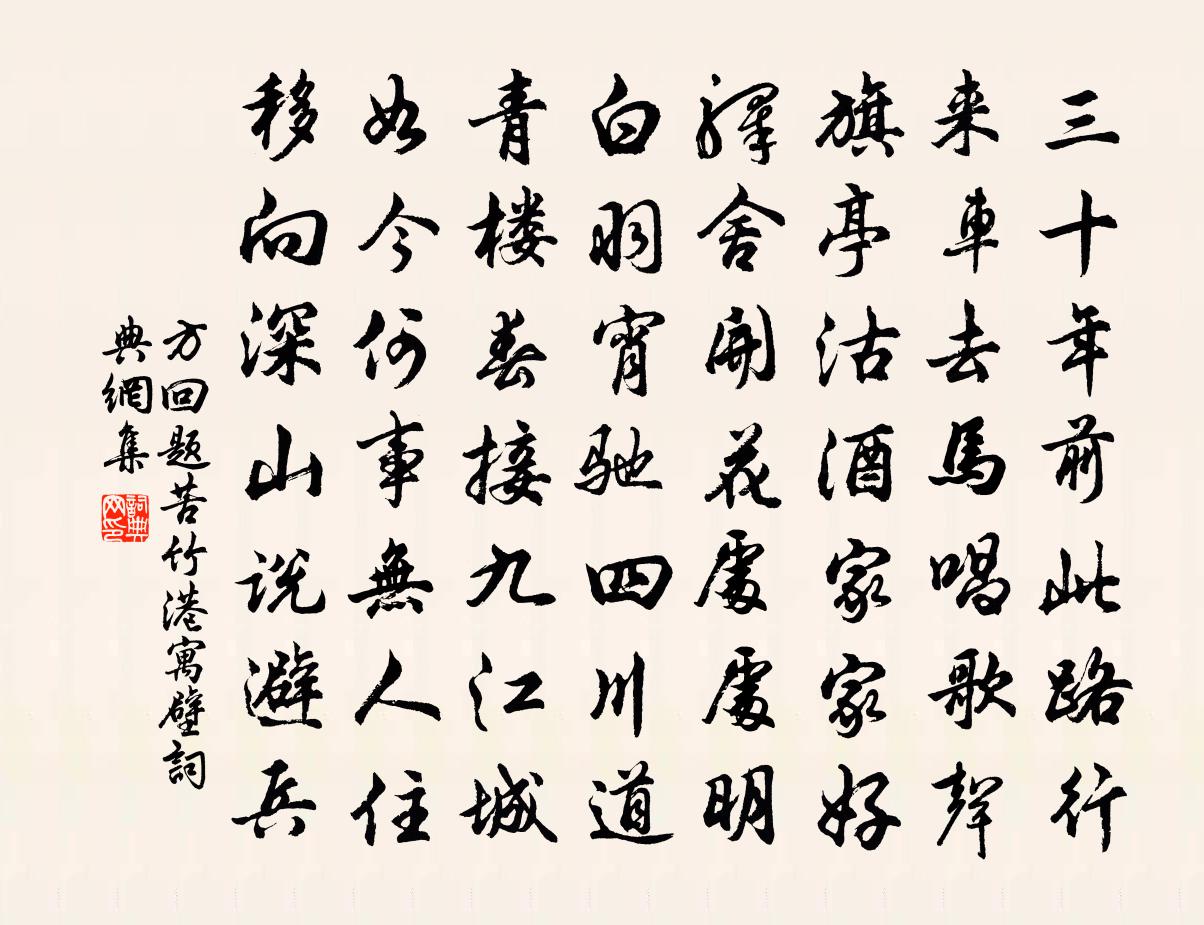 三十年前此路行
来車去馬唱歌聲
旗亭沽酒家家好
驛舍開花處處明
白羽宵馳四川道
青楼春接九江城
如今何事無人住
移向深山説避兵
方回題苦竹港寓壁詞
典網集
詞典網印